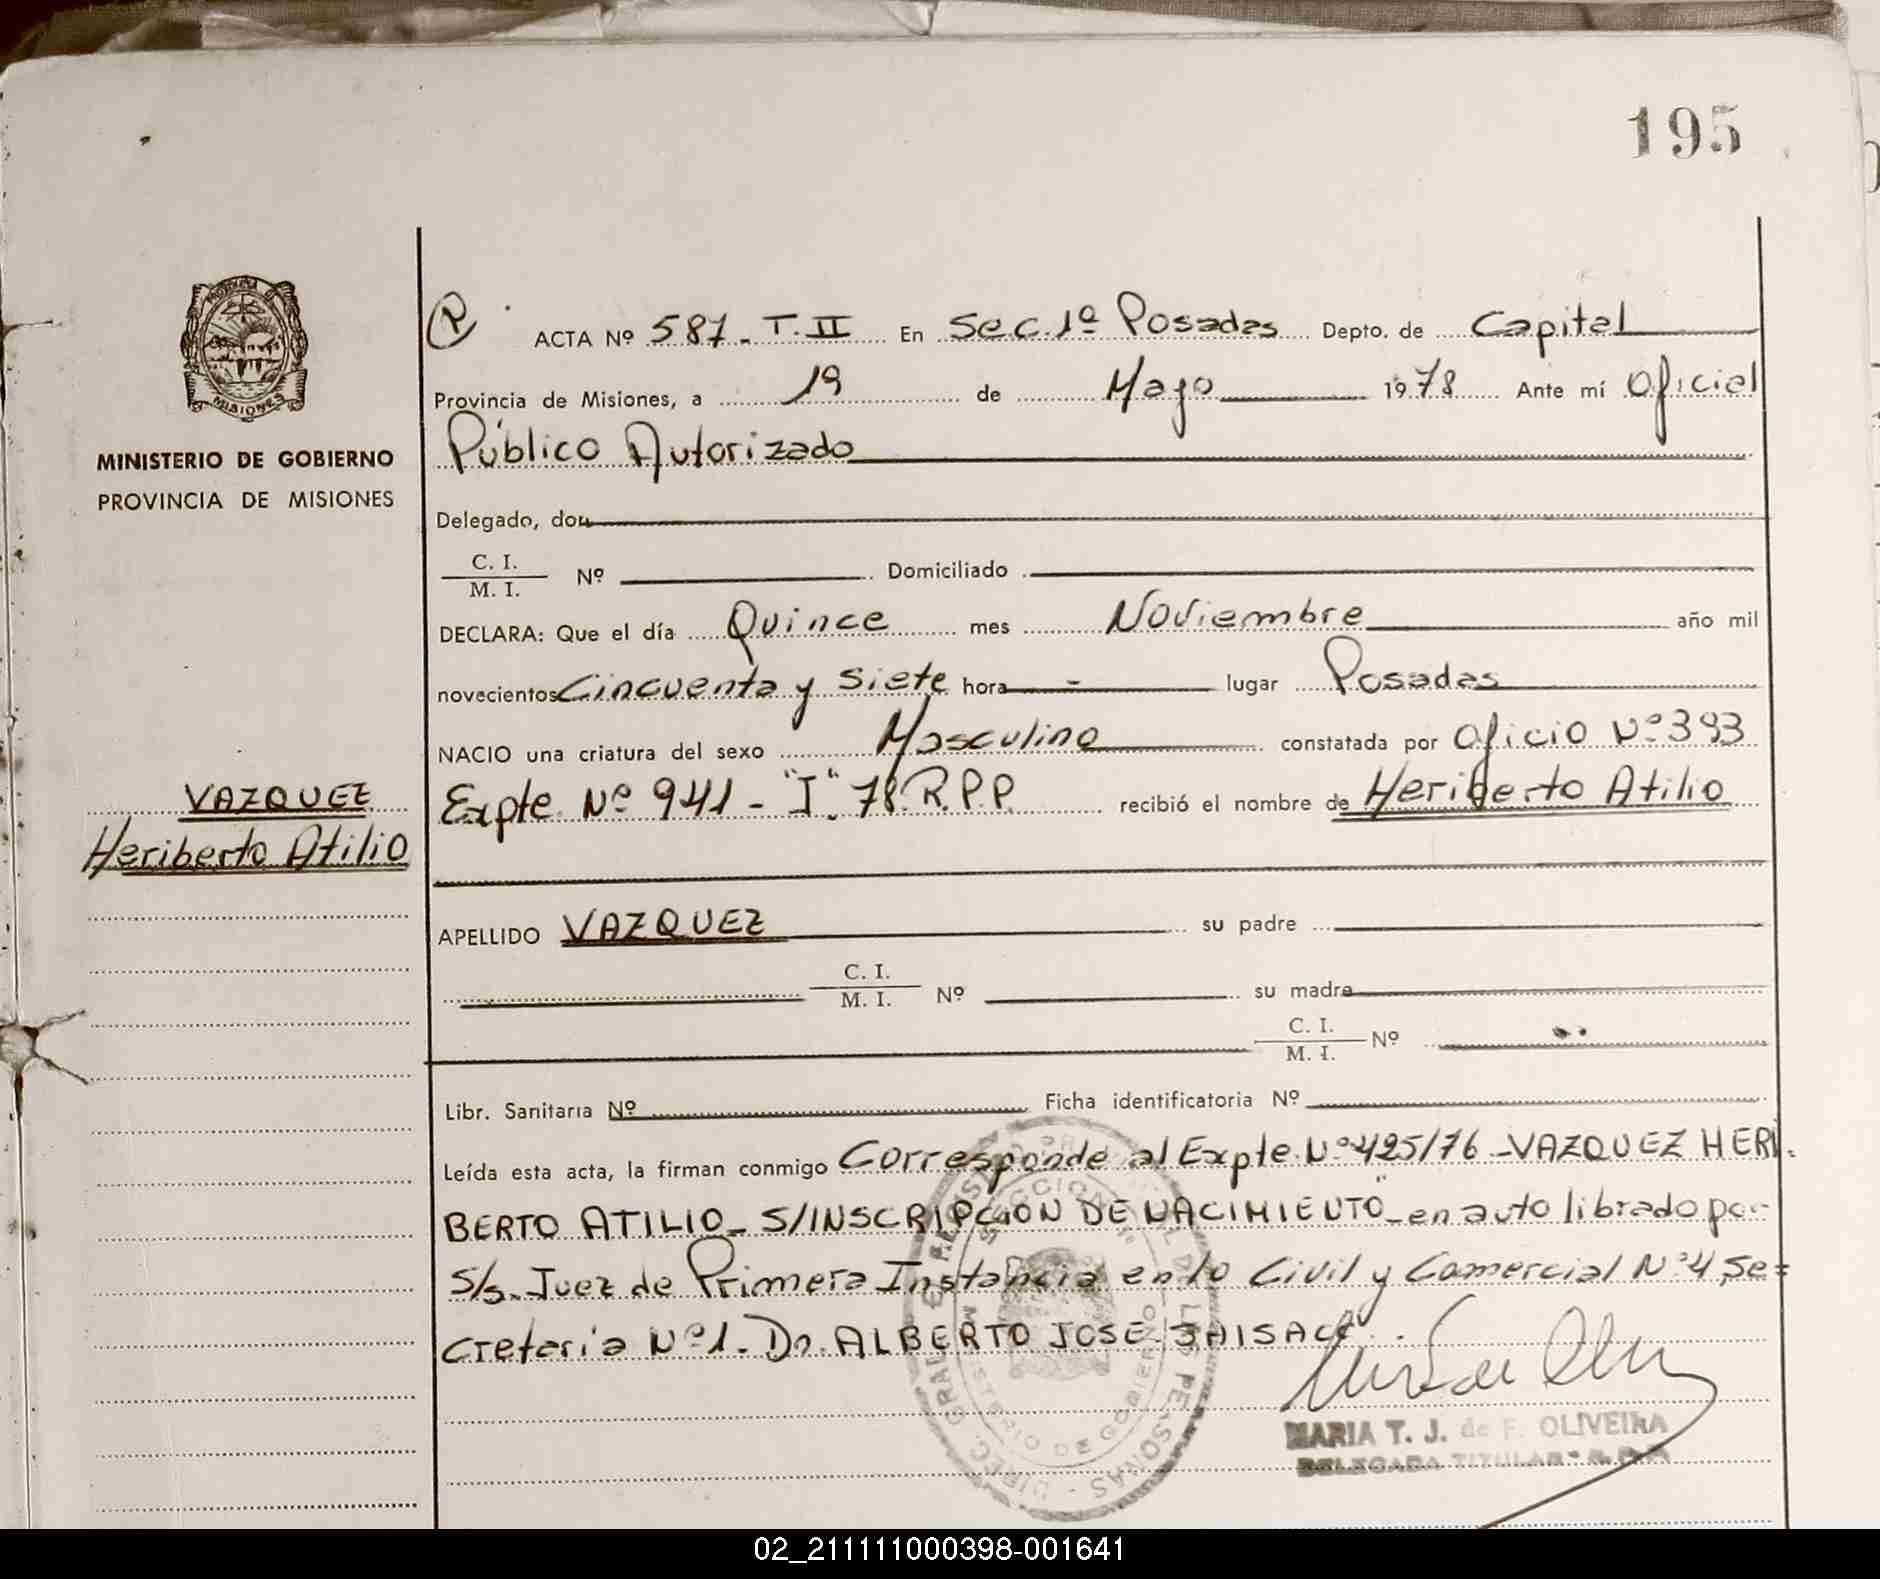 195
PROVINCIA DE
MISIONES
MINISTERIO DE GOBIERNO
PROVINCIA DE MISIONES
VAZQUEZ
Heriberto Atilio
ACTA Nº 587 - T. II En Sec. 1ª Posadas Depto. de Capital
Provincia de Misiones, a 19 de Mayo 1978 Ante mí Oficial
Público Autorizado
Delegado, don
C. I.
M. I. Nº Domiciliado
DECLARA: Que el día Quince mes Noviembre año mil
novecientos Cincuenta y siete hora - lugar Posadas
NACIO una criatura del sexo Masculino constatada por Oficio Nº 393
Expte. Nº 941 - "I". 78. R.P.P. recibió el nombre de Heriberto Atilio
APELLIDO VAZQUEZ su padre
C. I.
M. I. Nº su madre
C. I.
M. I. Nº
Libr. Sanitaria Nº Ficha identificatoria Nº
Leída esta acta, la firman conmigo Corresponde al Expte. Nº 425/76 - VAZQUEZ HERI-
BERTO ATILIO - S/INSCRIPCION DE NACIMIENTO" - en auto librado por
S/s. Juez de Primera Instancia en lo Civil y Comercial Nº 4, Se=
cretaria Nº 1. Dr. ALBERTO JOSE
MINISTERIO DE GOBIERNO
MARIA T. J. de F. OLIVEIRA
DELEGADA TITULAR
02_211111000398-001641